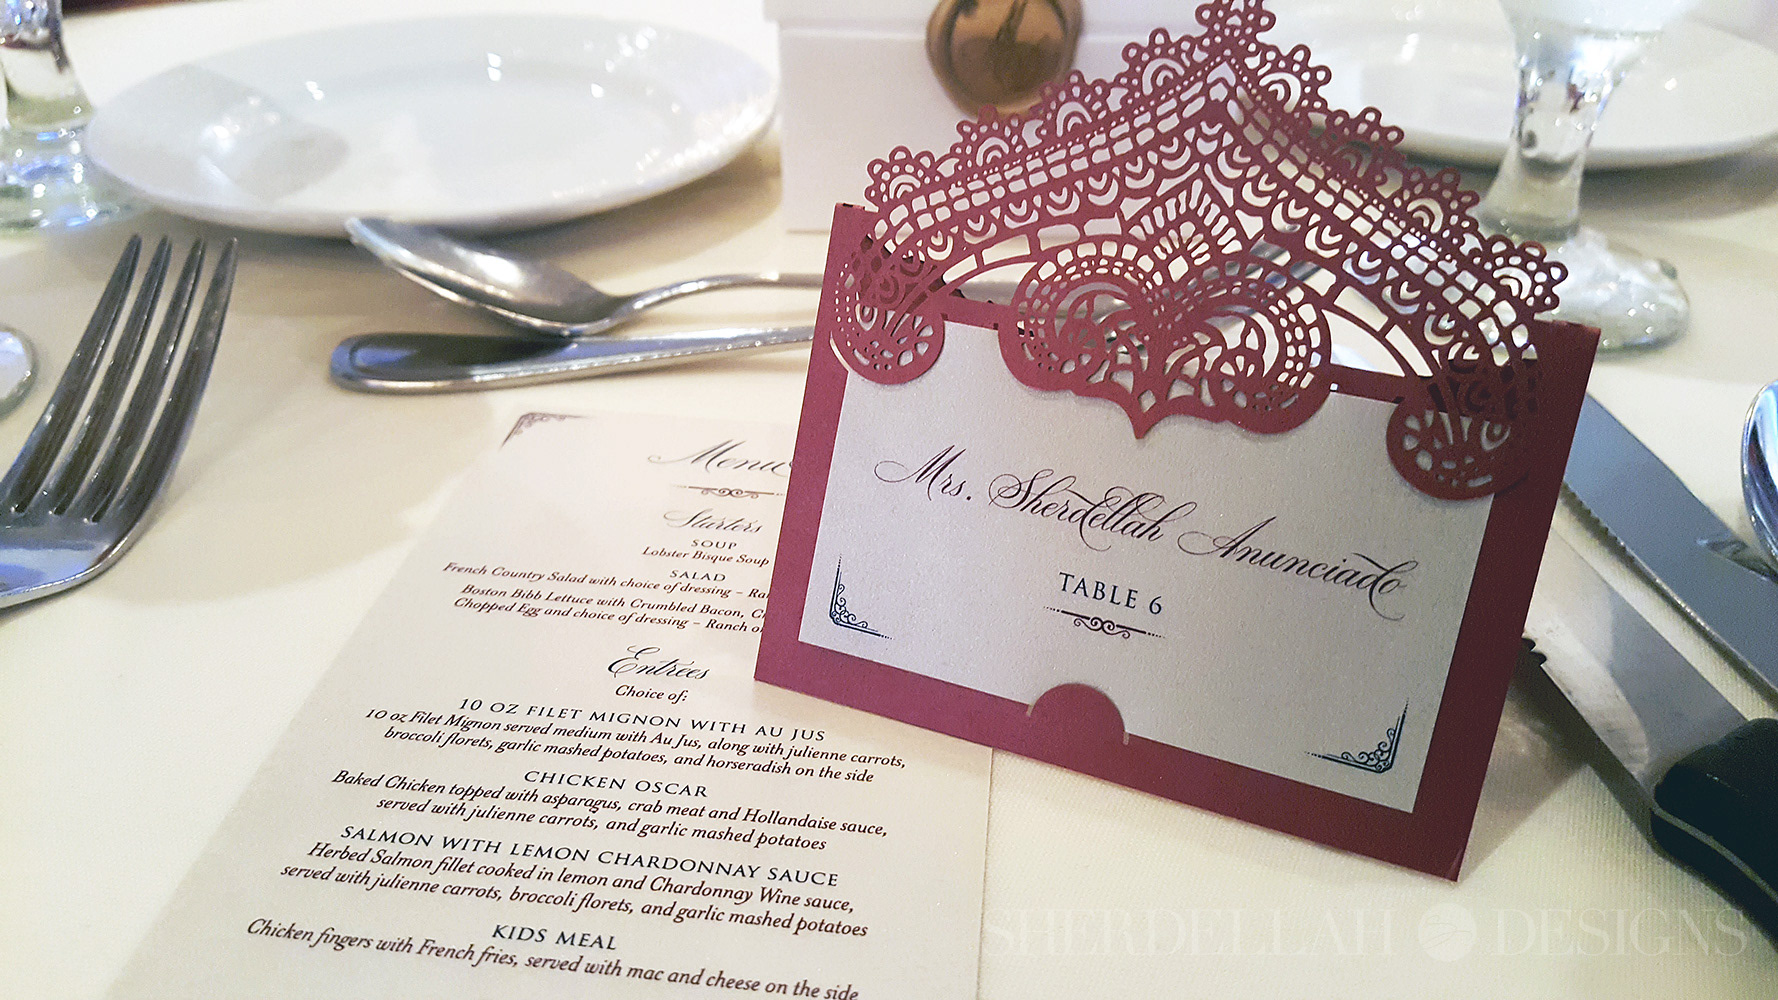 Menu
Starters
SOUP
Lobster Bisque Soup
SALAD
French Country Salad with choice of dressing –
Boston Bibb Lettuce with Crumbled Bacon,
Chopped Egg and choice of dressing – Ranch
Entrées
Choice of:
10 OZ FILET MIGNON WITH AU JUS
10 oz Filet Mignon served medium with Au Jus, along with julienne carrots,
broccoli florets, garlic mashed potatoes, and horseradish on the side
CHICKEN OSCAR
Baked Chicken topped with asparagus, crab meat and Hollandaise sauce,
served with julienne carrots, and garlic mashed potatoes
SALMON WITH LEMON CHARDONNAY SAUCE
Herbed Salmon fillet cooked in lemon and Chardonnay Wine sauce,
served with julienne carrots, broccoli florets, and garlic mashed potatoes
KIDS MEAL
Chicken fingers with French fries, served with mac and cheese on the side
Mrs. Sherdellah Anunciado
TABLE 6
SHERDELLAH DESIGNS